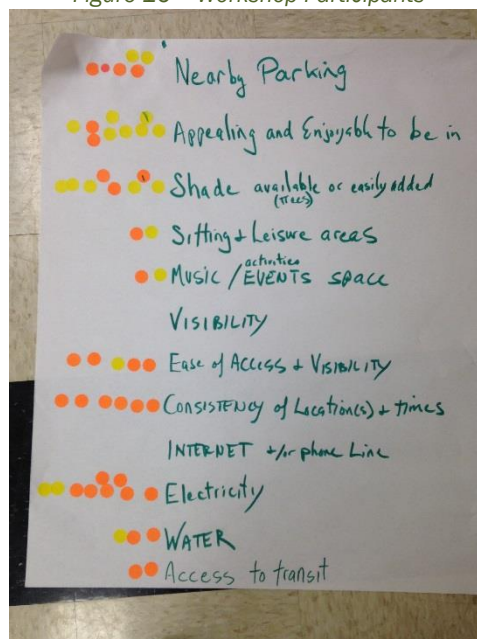 Figure 20 – Workshop Participants
Nearby Parking
Appealing and Enjoyable to be in
Shade available or easily added
(trees)
Sitting + Leisure areas
activities
Music / EVENTS space
VISIBILITY
Ease of Access + VISIBILITY
CONSISTENCY of Location(s) + times
INTERNET +/or phone Line
Electricity
WATER
Access to transit